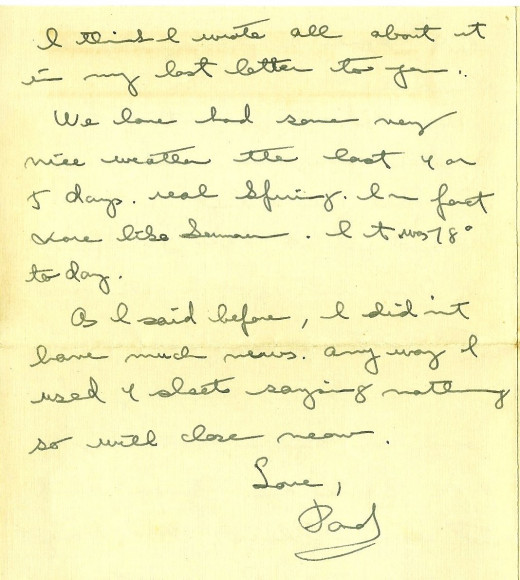 I think I wrote all about it
in my last letter to you..
We have had some very
nice weather the last 4 or
5 days. real Spring. In fact
more like Summer. It was 78°
today.
As I said before, I did'nt
have much news. any way I
used 4 sheets saying nothing
so will close now.
Love,